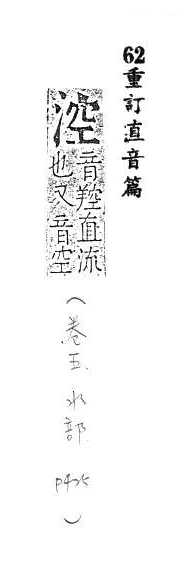 62重訂直音篇
涳
音羫直流
也又音空
（卷五 水部 P425）